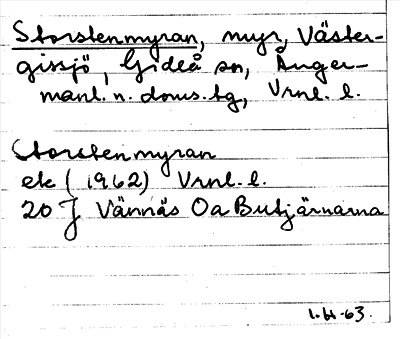 Storstenmyran, myr, Väster-
gissjö, Gideå sn, Ånger-
manl. n. doms.bg, Vrnl. l.
Storstenmyran
ek (1962) Vrnl. l.
20 J Vännäs Oa Butjärnarna
-63.